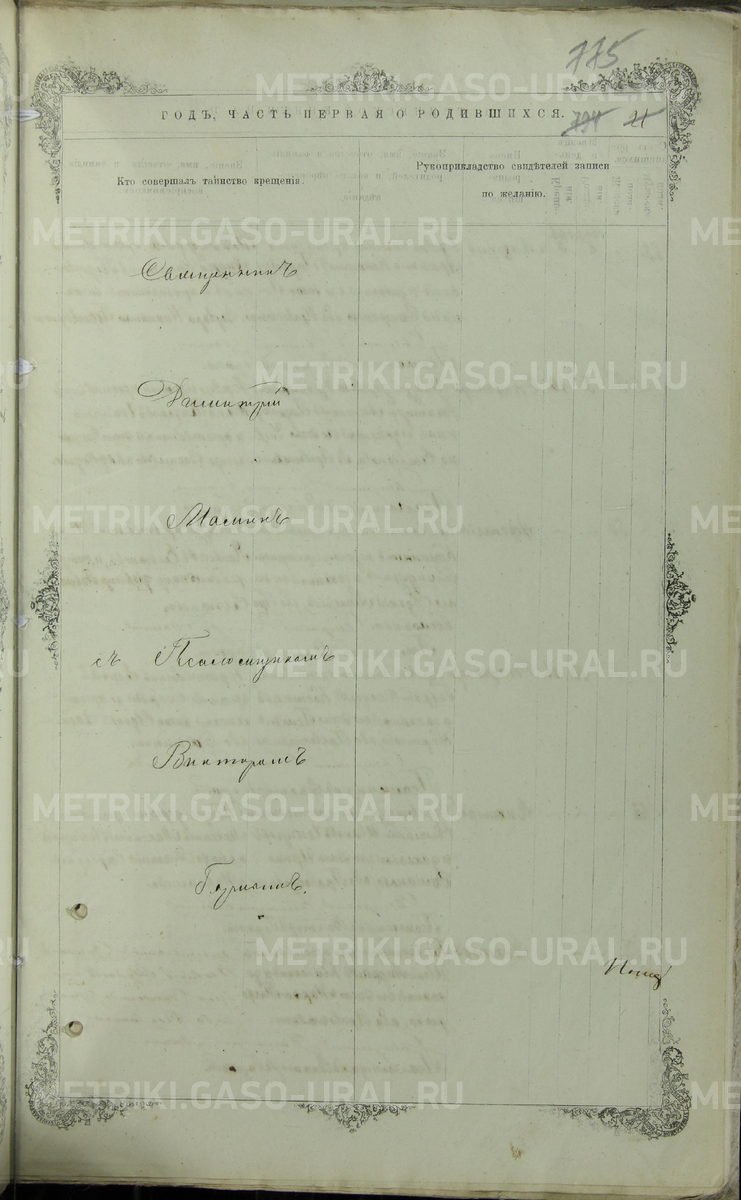 775
ГОДЪ, ЧАСТЬ ПЕРВАЯ О РОДИВШИХСЯ.
21
Кто совершалъ таинство крещенія.
Рукоприкладство свидѣтелей записи
по желанію.
Священникъ
Димитрій
съ Псаломщикомъ
Викторомъ
METRIKI.GASO-URAL.RU